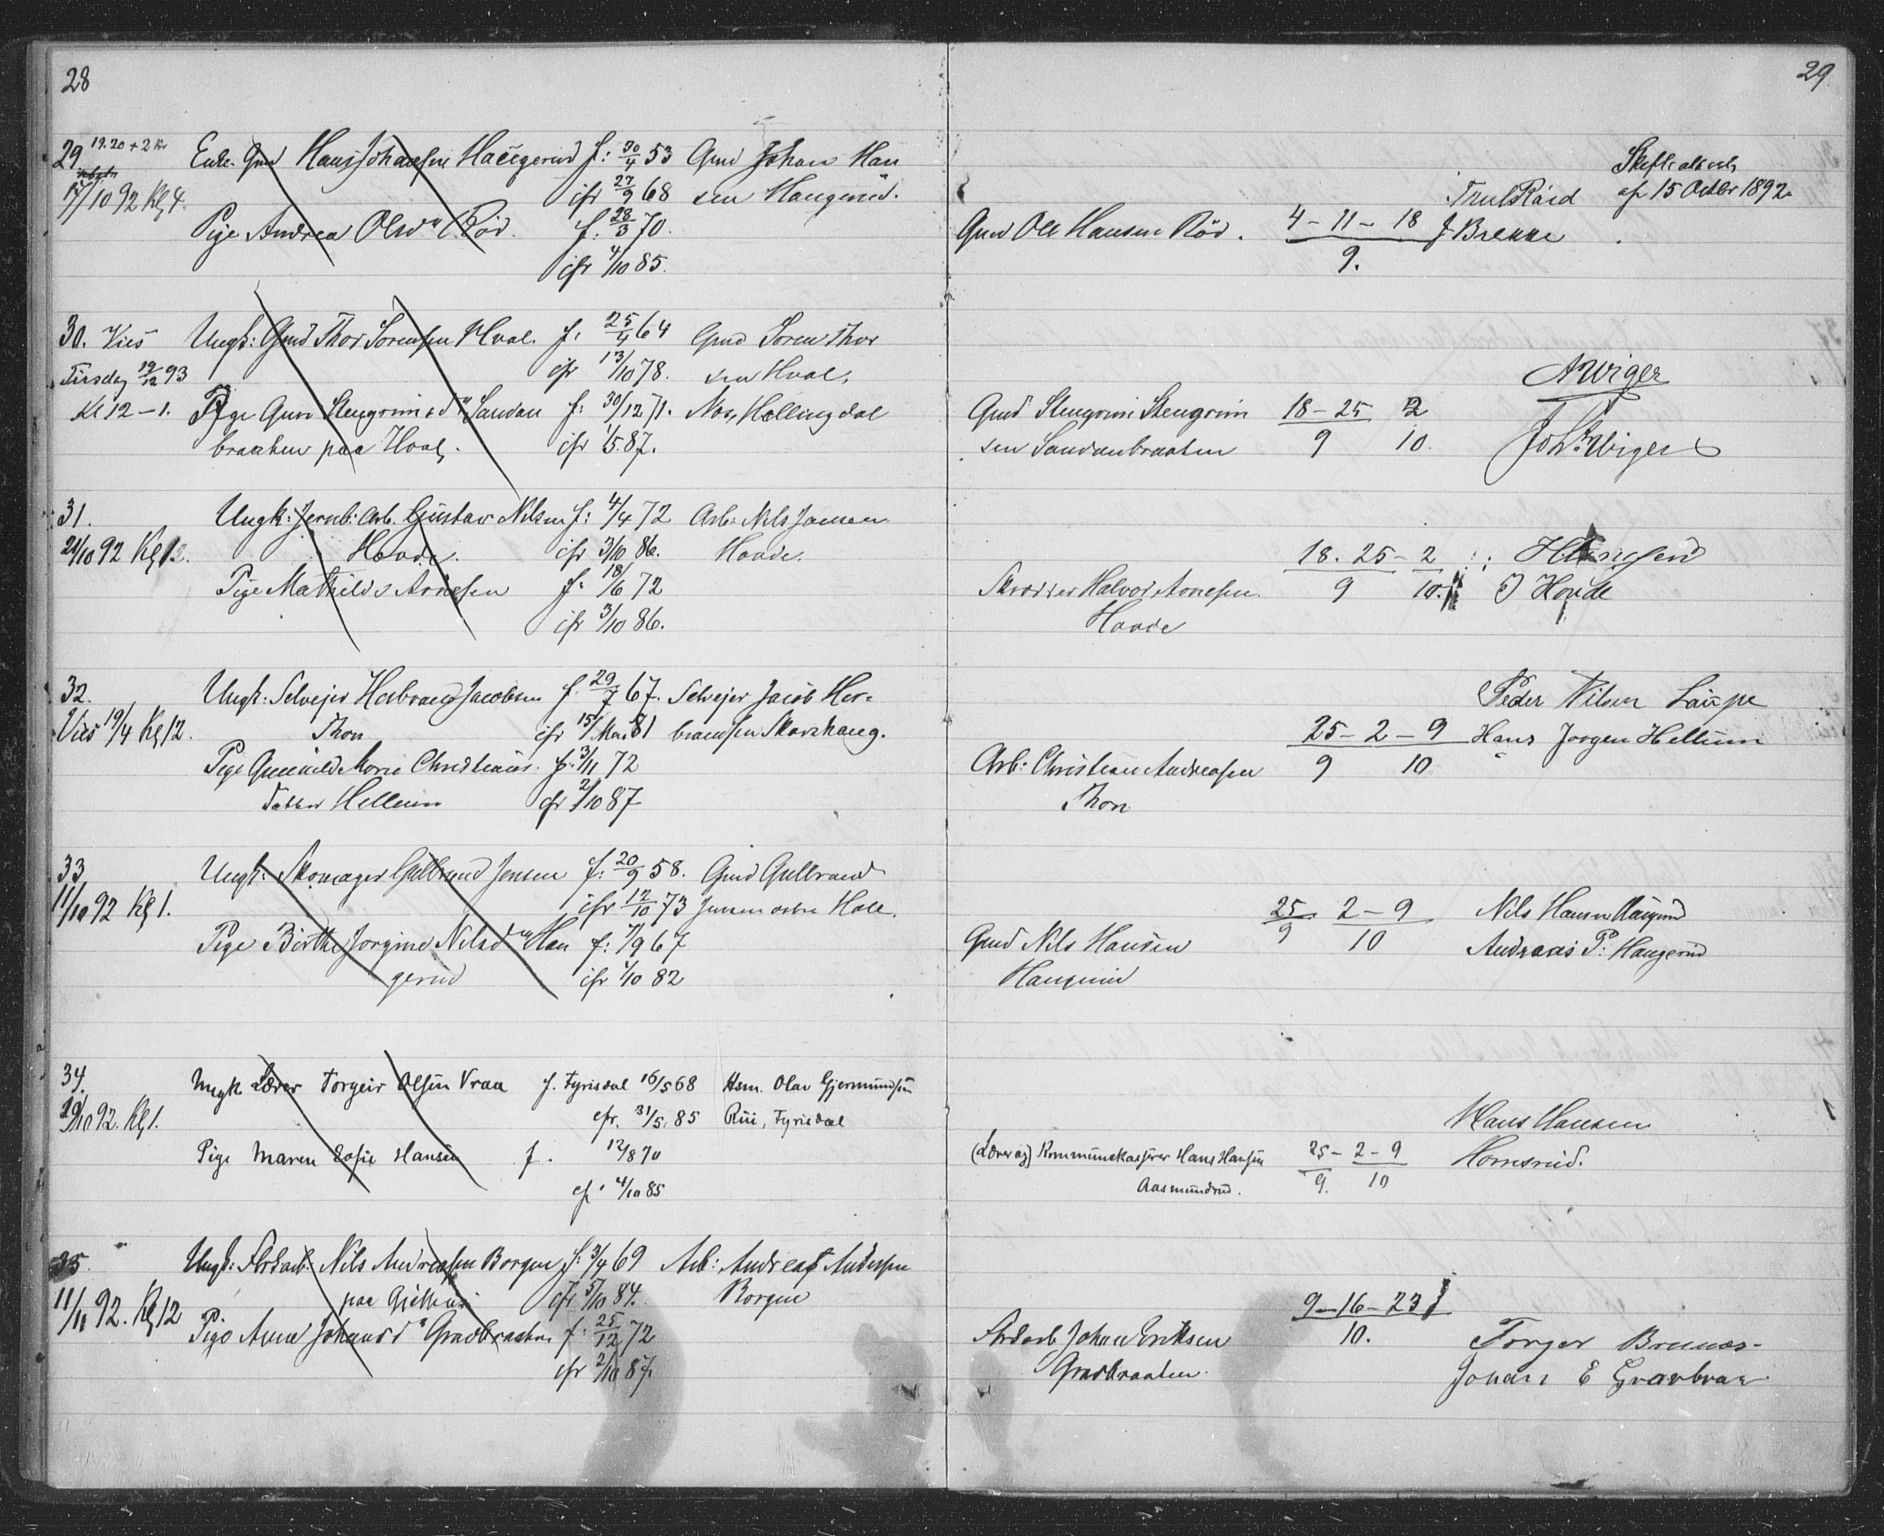 28
29 19.20 + 2 Kr
17/10 92 Kl 4.
Enk. Gmd Hans Johansen Haugerud f: 30/4 53 Gmd Johan Han
cfr 27/9 68 sen Haugerud.
Pige Andrea Olsd. Rød. f: 28/3 70.
cfr 4/10 85.
30. Vies Ungk: Gmd Thor Sørensen Hval. f: 25/4 64 Gmd Søren Thor
Tirsdag 19/12 93 cfr 13/10 78. sen Hval.
Kl 12 - 1. Pige Guri Stengrimsd. Sandan f: 30/12 71. Næs, Hallingdal
braaten paa Hval. cfr 1/5 87.
31. Ungk: Jernb: Arb. Gustav Nilsen f: 4/4 72 Arb: Nils Jansen
21/10 92 Kl 12. Hovde. cfr 3/10 86. Hovde.
Pige Mathilde Arnesen f: 18/6 72
cfr 3/10 86.
32. Ungk: Selvejer Herbrand Jacobsen f. 29/7 67. Selvejer Jacob Her-
Vies 19/4 Kl 12. Thon cfr 15/Mai 81 brandsen Skarshaug.
Pige Gunhild Marie Christians. f. 3/11 72
datter Hellum cfr 2/10 87
33 Ungk: Skomager Gulbrand Jensen f: 20/9 58. Gmd Gulbrand
11/10 92 Kl 1. cfr 12/10 73 Jensen østre Hole.
Pige Birthe Jørgine Nilsd. Hau f: 7/9 67
gerud cfr 1/10 82
34. Ungk Lærer Torgeir Olsen Vraa f. Fyrisdal 16/5 68 Hsm. Olav Gjermundsen
29/10 92. Kl 1. cfr. 31/5. 85 Rui, Fyrisdal
Pige Maren Sofie Hansen f. 12/8 70
cf. 4/10 85
35. Ungk: Arb. Nils Andreasen Borgen f: 3/4 69 Arb: Andreas Andersen
11/11 92. Kl 12 paa Gjethus cfr 5/10 84. Borgen
Pige Anna Johansd. Gravbraaten f: 25/12 72
cfr 2/10 87.
29
af 15 Octbr 1892
Truls Røed
Gmd Ole Hansen Rød. 4 - 11 - 18 J Brekke
9.
A Wiger
Gmd Stengrim Stengrim 18 - 25 2
sen Sandanbraaten 9 10. Joh. Wiger
18. 25 - 2 H Hansen
Skrædder Halvor Arnesen 9 10. J Hovde
Hovde
Peder Nilsen Laupe
25 - 2 - 9 Hans Jørgen Hellum
Arb: Christian Andreasen 9 10
Thon
25 2 - 9 Nils Hansen Haugerud
Gmd Nils Hansen 9 10 Andreas P. Haugerud
Haugerud
Hans Hansen
(Lærer og) Kommunekasserer Hans Hansen 25 - 2 - 9 Hornsrud.
Aasmundrud. 9. 10
9 - 16 - 23
Johan Eriksen 10. Torger Brunæs-
Gravbraaten. Johan E Gravbraa